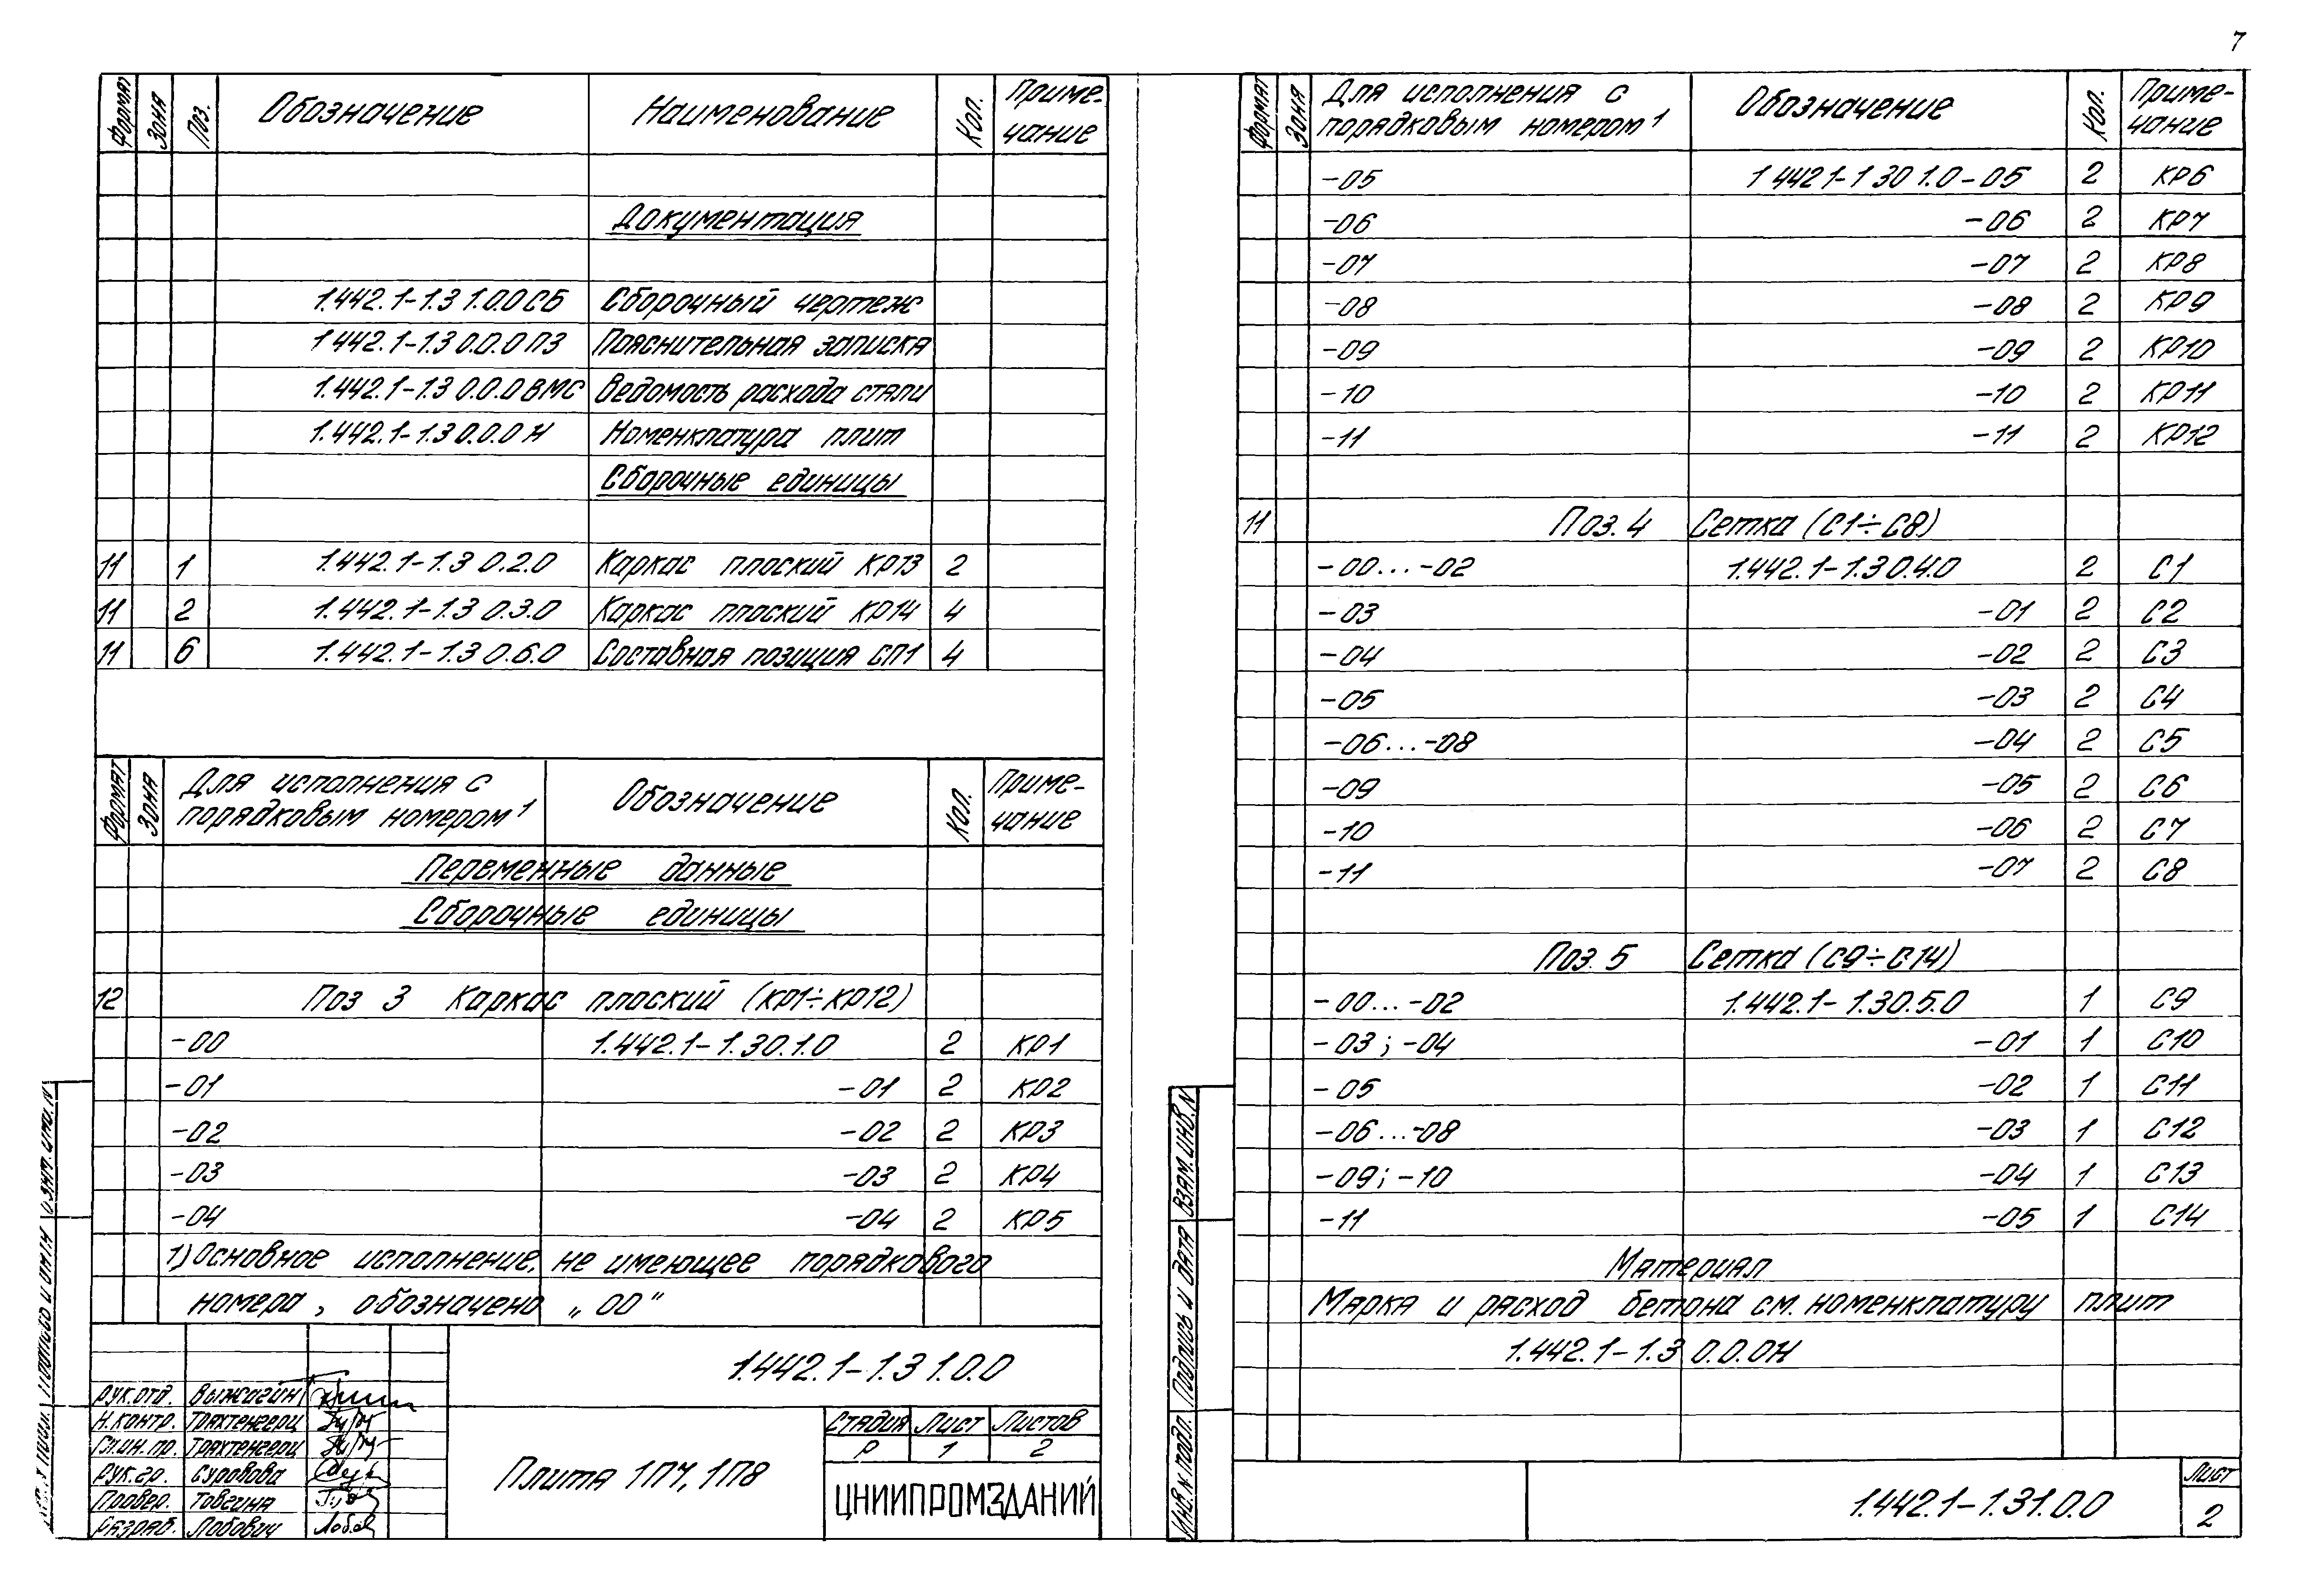 7
Формат Зона Поз. Обозначение Наименование Кол. Приме-
чание
Документация
1.442.1-1.3 1.0.0СБ Сборочный чертеж
1 442.1-1.3 0.0.0ПЗ Пояснительная записка
1.442.1-1.3 0.0.0ВМС Ведомость расхода стали
1.442.1-1.3 0.0.0 Н Номенклатура плит
Сборочные единицы
11 1 1.442.1-1.3 0.2.0 Каркас плоский КР13 2
11 2 1.442.1-1.3 0.3.0 Каркас плоский КР14 4
11 6 1.442.1-1.3 0.6.0 Составная позиция СП1 4
Формат Зона Для исполнения с порядковым номером¹ Обозначение Кол. Приме-
чание
Переменные данные
Сборочные единицы
12 Поз 3 Каркас плоский (КР1÷КР12)
-00 1.442.1-1.30.1.0 2 КР1
-01 -01 2 КР2
-02 -02 2 КР3
-03 -03 2 КР4
-04 -04 2 КР5
1) Основное исполнение, не имеющее порядкового
номера, обозначено „00"
1.442.1-1.3 1.0.0
Рук.отд. Выжигин
Н.контр. Тряхтенгерц
Гл.ин.пр. Тряхтенгерц
Рук.гр. Суровова
Провер. Товгина
Разраб. Лобович
Плита 1П7, 1П8
Стадия Лист Листов
Р 1 2
ЦНИИПРОМЗДАНИЙ
Формат Зона Для исполнения с порядковым номером¹ Обозначение Кол. Приме-
чание
-05 1 442 1-1 30 1.0-05 2 КР6
-06 -06 2 КР7
-07 -07 2 КР8
-08 -08 2 КР9
-09 -09 2 КР10
-10 -10 2 КР11
-11 -11 2 КР12
11 Поз. 4 Сетка (С1÷С8)
-00...-02 1.442.1-1.30.4.0 2 С1
-03 -01 2 С2
-04 -02 2 С3
-05 -03 2 С4
-06...-08 -04 2 С5
-09 -05 2 С6
-10 -06 2 С7
-11 -07 2 С8
Поз. 5 Сетка (С9÷С14)
-00...-02 1.442.1-1.30.5.0 1 С9
-03; -04 -01 1 С10
-05 -02 1 С11
-06...-08 -03 1 С12
-09; -10 -04 1 С13
-11 -05 1 С14
Материал
Марка и расход бетона см. номенклатуру плит
1.442.1-1.3 0.0.0Н
Инв.№ подл. Подпись и дата Взам.инв.N
1.442.1-1.31.0.0
Лист
2